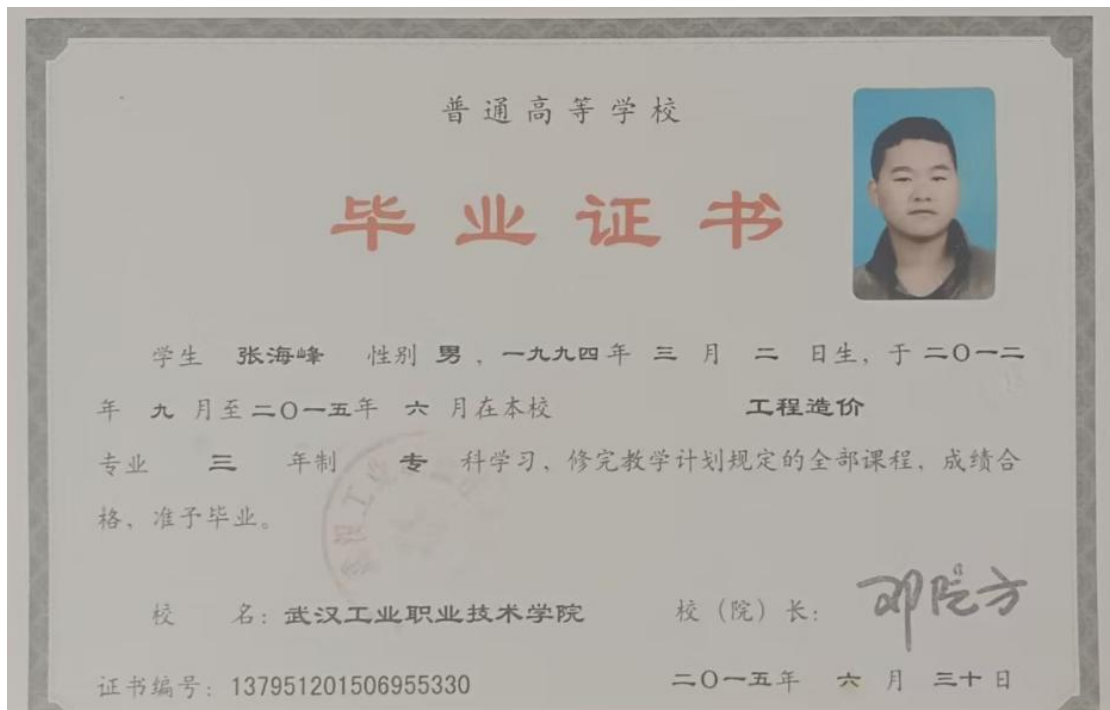 普通高等学校
毕业证书
学生 张海峰 性别 男，一九九四年 三 月 二 日生，于二〇一二
年 九 月至二〇一五年 六 月在本校 工程造价
专业 三 年制 专 科学习，修完教学计划规定的全部课程，成绩合
格，准予毕业。
校 名：武汉工业职业技术学院 校（院）长：
证书编号：137951201506955330 二〇一五年 六 月 三十 日